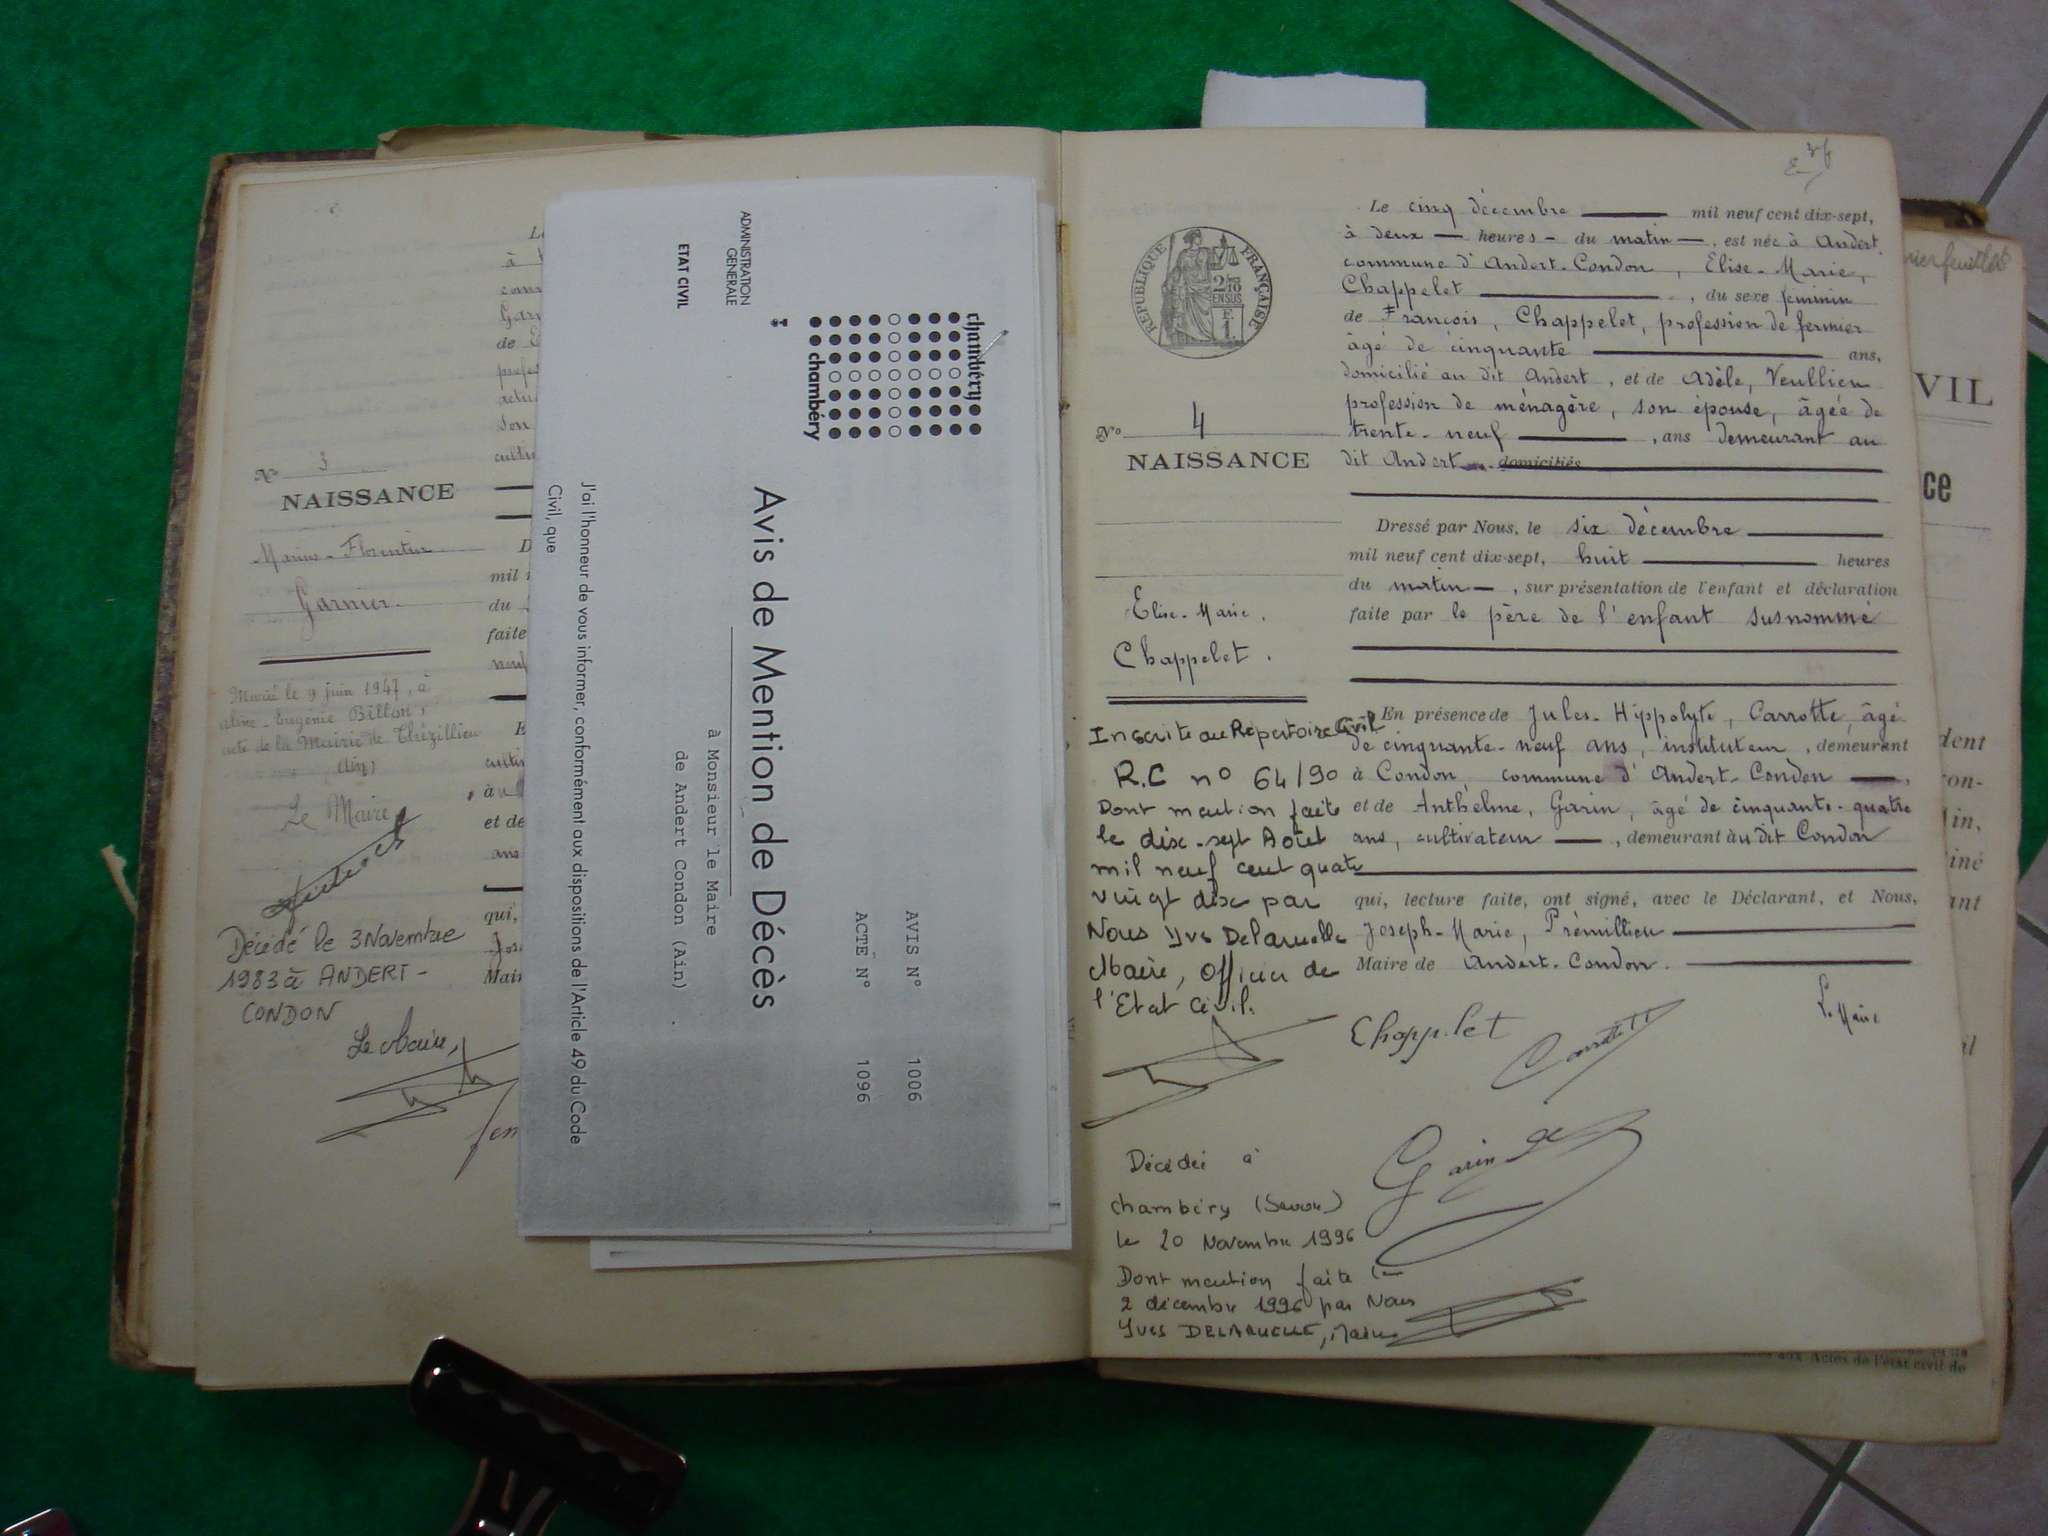 N° 3
NAISSANCE
Marius-Florentin
Garnier.
Marié le 9 juin 1947, à
Aline-Eugénie Billon,
acte de la Mairie de Thézillieu
(Ain)
Le Maire
Décédé le 3 Novembre
1983 à ANDERT-
CONDON
Le Maire,
chambéry
chambéry
ADMINISTRATION
GENERALE
ETAT CIVIL
AVIS N° 1006
ACTE N° 1096
Avis de Mention de Décès
à Monsieur le Maire
de Andert Condon (Ain) .
J'ai l'honneur de vous informer, conformément aux dispositions de l'Article 49 du Code
Civil, que
REPUBLIQUE FRANÇAISE
N° 4
NAISSANCE
Elise-Marie.
Chappelet.
Inscrite au Répertoire Civil
R.C n° 64/90
Dont mention faite
le dix-sept Août
mil neuf cent quatre
vingt dix par
Nous Yves Delaruelle
Maire, Officier de
l'Etat Civil.
Décédée à
Chambéry (Savoie)
le 20 Novembre 1996
Dont mention faite le
2 décembre 1996 par Nous
Yves DELARUELLE, Maire
Le cinq décembre mil neuf cent dix-sept,
à deux heures du matin, est née à Andert
commune d'Andert-Condon, Elise-Marie,
Chappelet, du sexe féminin
de François, Chappelet, profession de fermier
âgé de cinquante ans,
domicilié au dit Andert, et de Adèle, Veullien
profession de ménagère, son épouse, âgée de
trente-neuf, ans demeurant au
dit Andert domiciliés
Dressé par Nous, le six décembre
mil neuf cent dix-sept, huit heures
du matin, sur présentation de l'enfant et déclaration
faite par le père de l'enfant susnommé
En présence de Jules-Hippolyte, Carrotte, âgé
de cinquante-neuf ans, instituteur, demeurant
à Condon commune d'Andert-Condon,
et de Anthelme, Garin, âgé de cinquante-quatre
ans, cultivateur, demeurant au dit Condon
qui, lecture faite, ont signé, avec le Déclarant, et Nous,
Joseph-Marie, Prémillieu
Maire de Andert-Condon.
Le Maire
Chappelet
Garin
VIL
ce